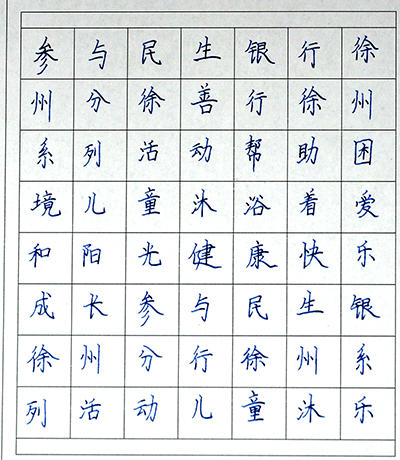 参与民生银行徐
州分徐善行徐州
系列活动帮助困
境儿童沐浴着爱
和阳光健康快乐
成长参与民生银
徐州分行徐州系
列活动儿童沐乐